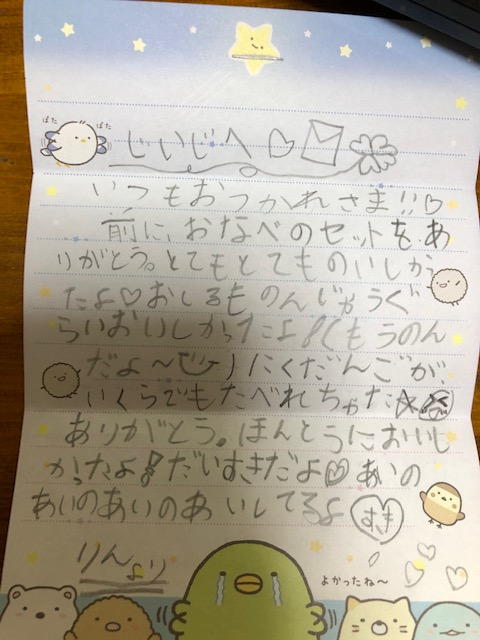 ぱた ぱた
じいじへ♡
いつもおつかれさま!!♡
前に、おなべのセットを、あ
りがとう。とてもとてものいしかっ
たよ♡おしるものんじゃうぐ
らいおいしかったよ!(もうのん
だよ~)にくだんごが、
いくらでもたべれちゃた
ありがとう。ほんとうにおいし
かったよ!だいすきだよ♡あいの
あいのあいのあいしてるよ すき
りんより
よかったね~